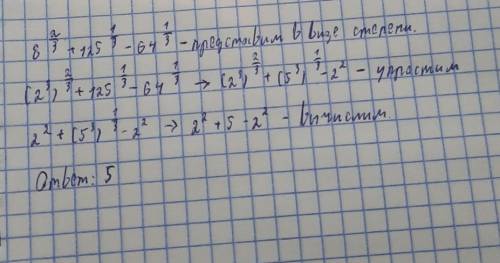 8^(2/3) + 125^(1/3) - 64^(1/3) - представим в виде степени.
(2³)^(2/3) + 125^(1/3) - 64^(1/3) → (2³)^(2/3) + (5³)^(1/3) - 2² - упрастим
2² + (5³)^(1/3) - 2² → 2² + 5 - 2² - вичислим.
Ответ: 5